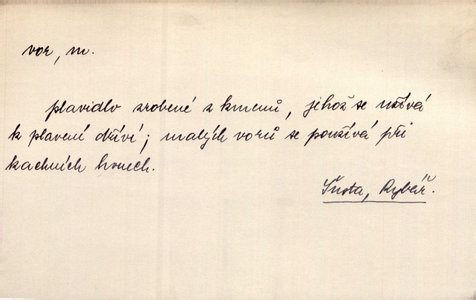 vor, m.
plavidlo zrobené z kmenů, jehož se užívá
k plavení dříví; malých vorů se používá při
kachních honech.
Šusta, Rybář.